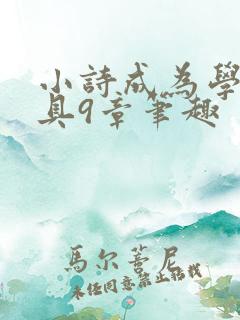 小詩成為學
具9章筆趣
馬尔蓍尼
未经同意禁止转载